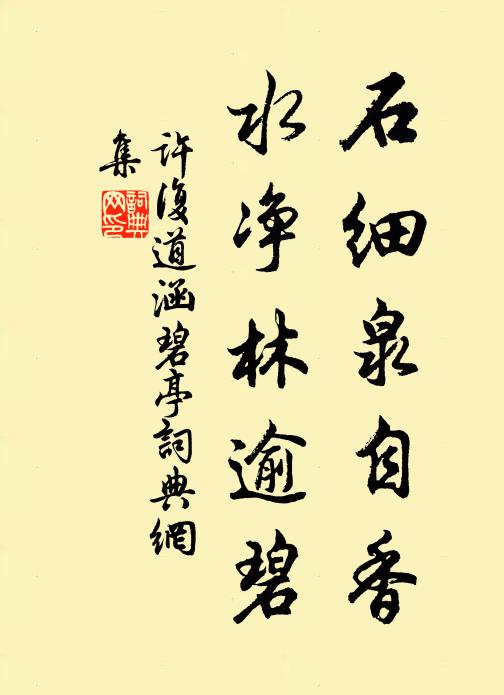 石细泉自香
水净林逾碧
许復道涵碧亭詞典網
集
詞典
网印